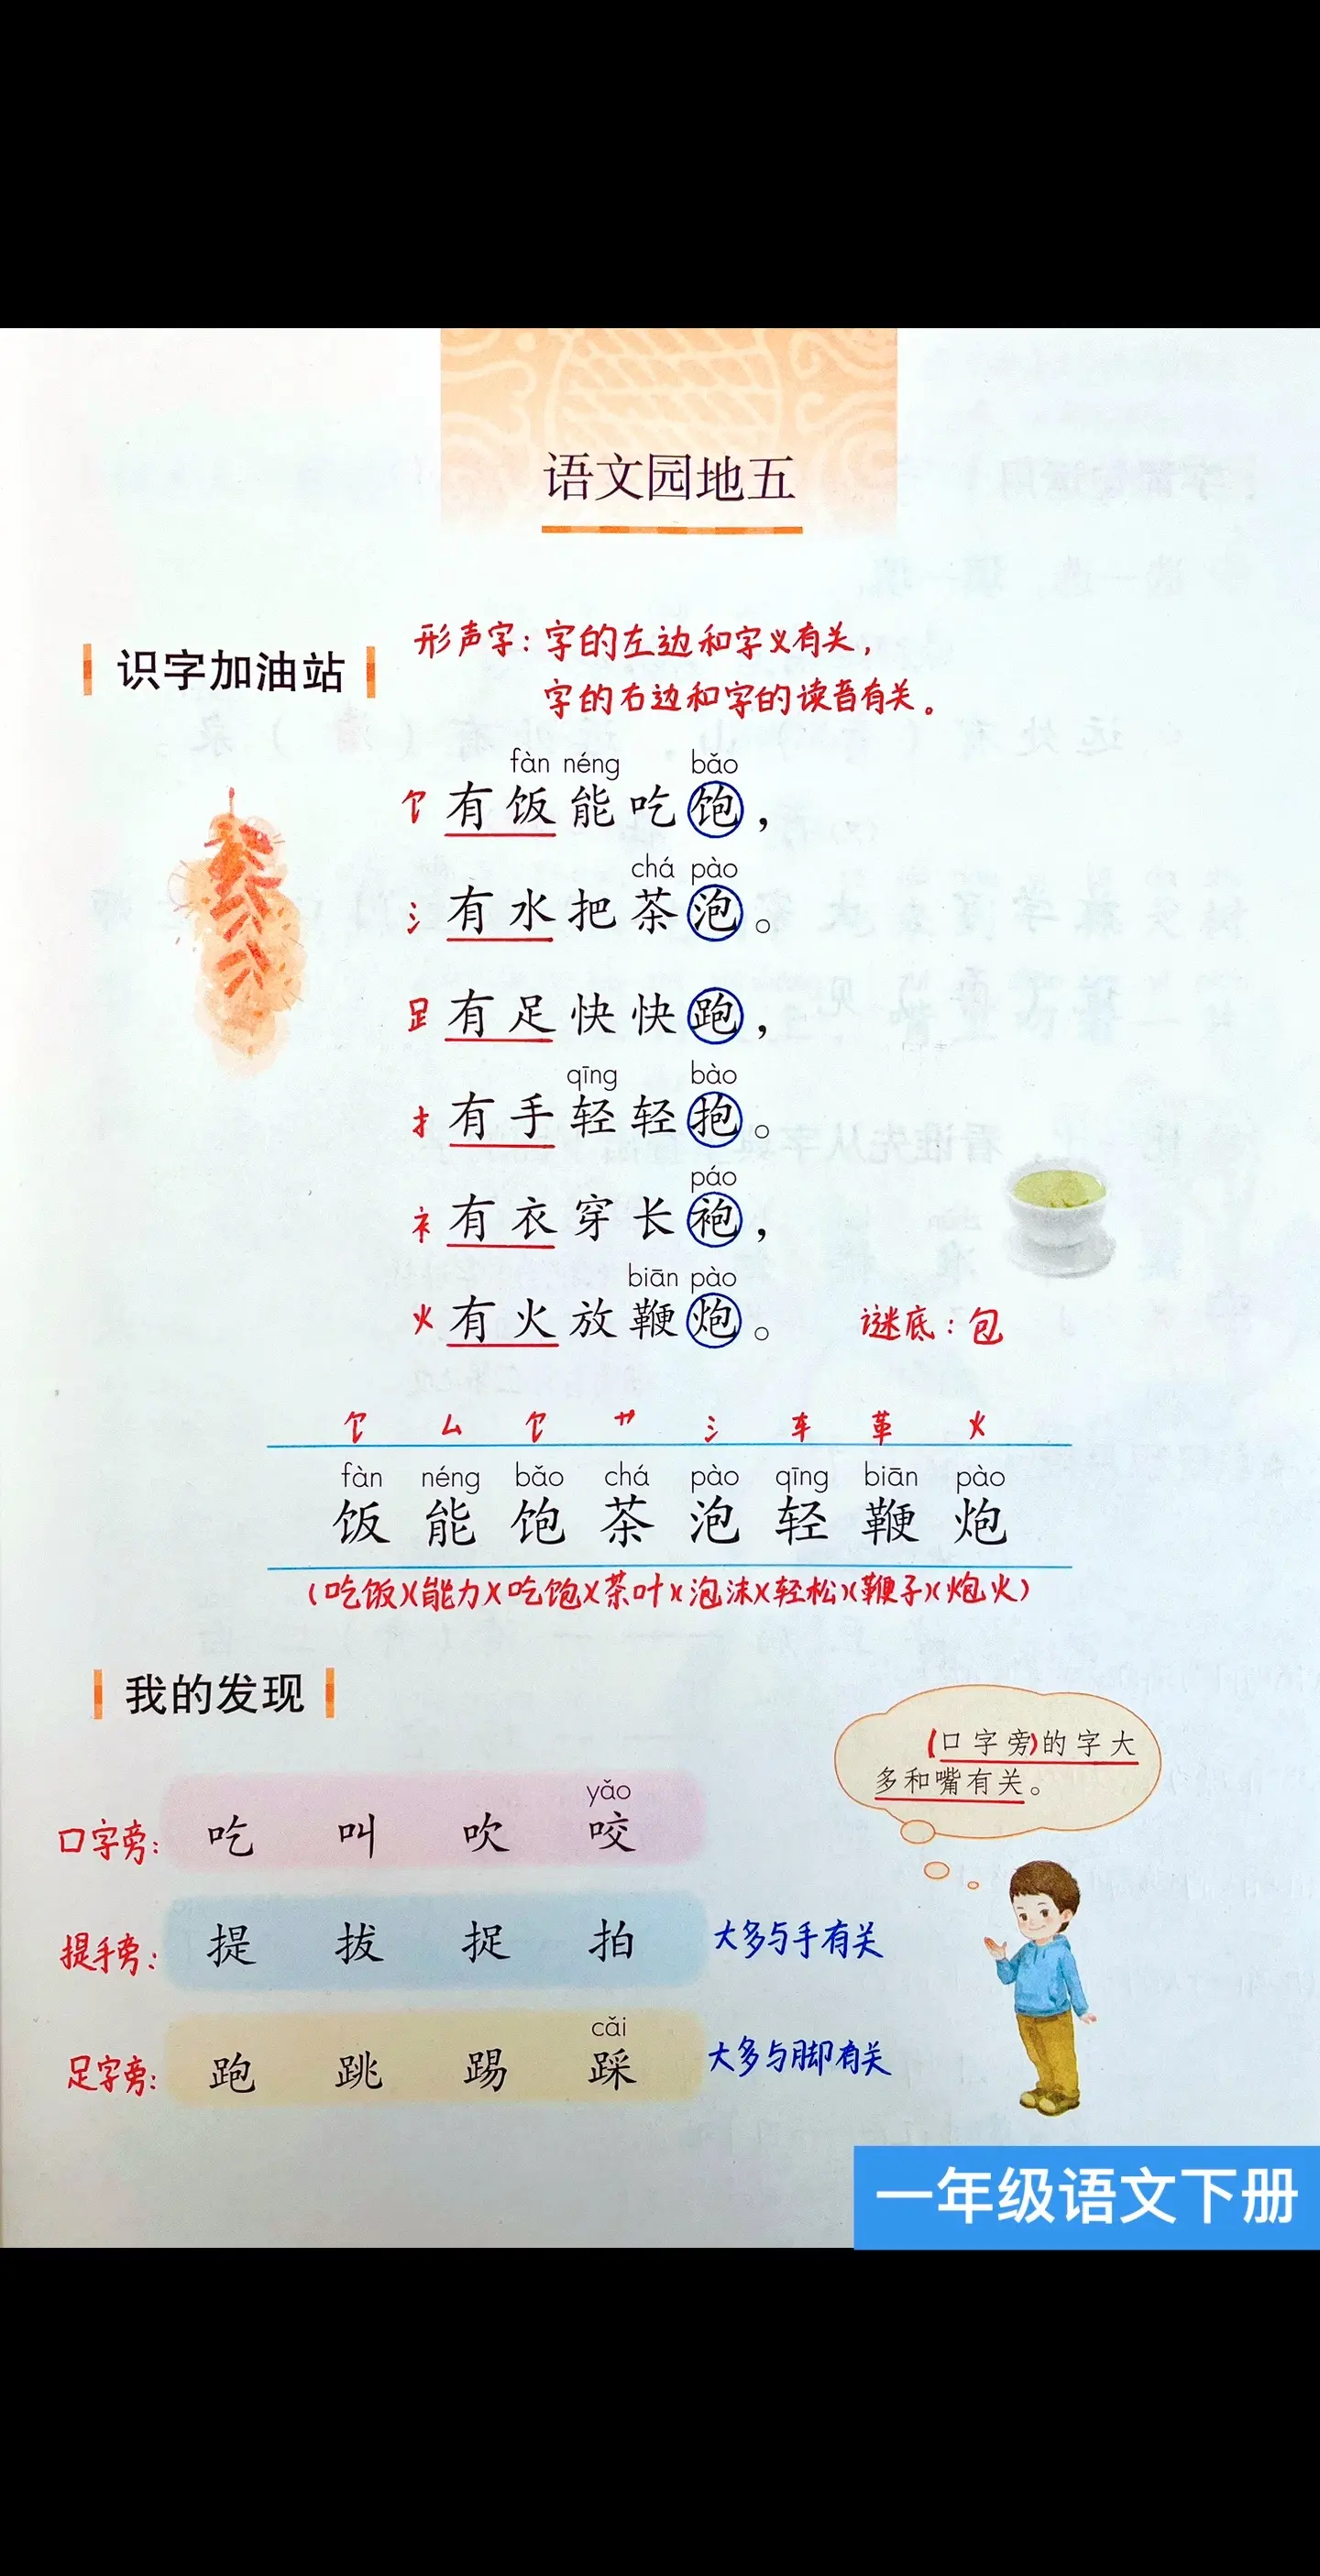 语文园地五
识字加油站
形声字：字的左边和字义有关，
字的右边和字的读音有关。
fàn néng bǎo
饣 有饭能吃饱，
chá pào
氵 有水把茶泡。
𧾷 有足快快跑，
qīng bào
扌 有手轻轻抱。
páo
衤 有衣穿长袍，
biān pào
火 有火放鞭炮。
谜底：包
饣 厶 饣 艹 氵 车 革 火
fàn néng bǎo chá pào qīng biān pào
饭 能 饱 茶 泡 轻 鞭 炮
（吃饭）（能力）（吃饱）（茶叶）（泡沫）（轻松）（鞭子）（炮火）
我的发现
（口字旁）的字大
多和嘴有关。
yǎo
口字旁： 吃 叫 吹 咬
提手旁： 提 拔 捉 拍 大多与手有关
cǎi
足字旁： 跑 跳 踢 踩 大多与脚有关
一年级语文下册